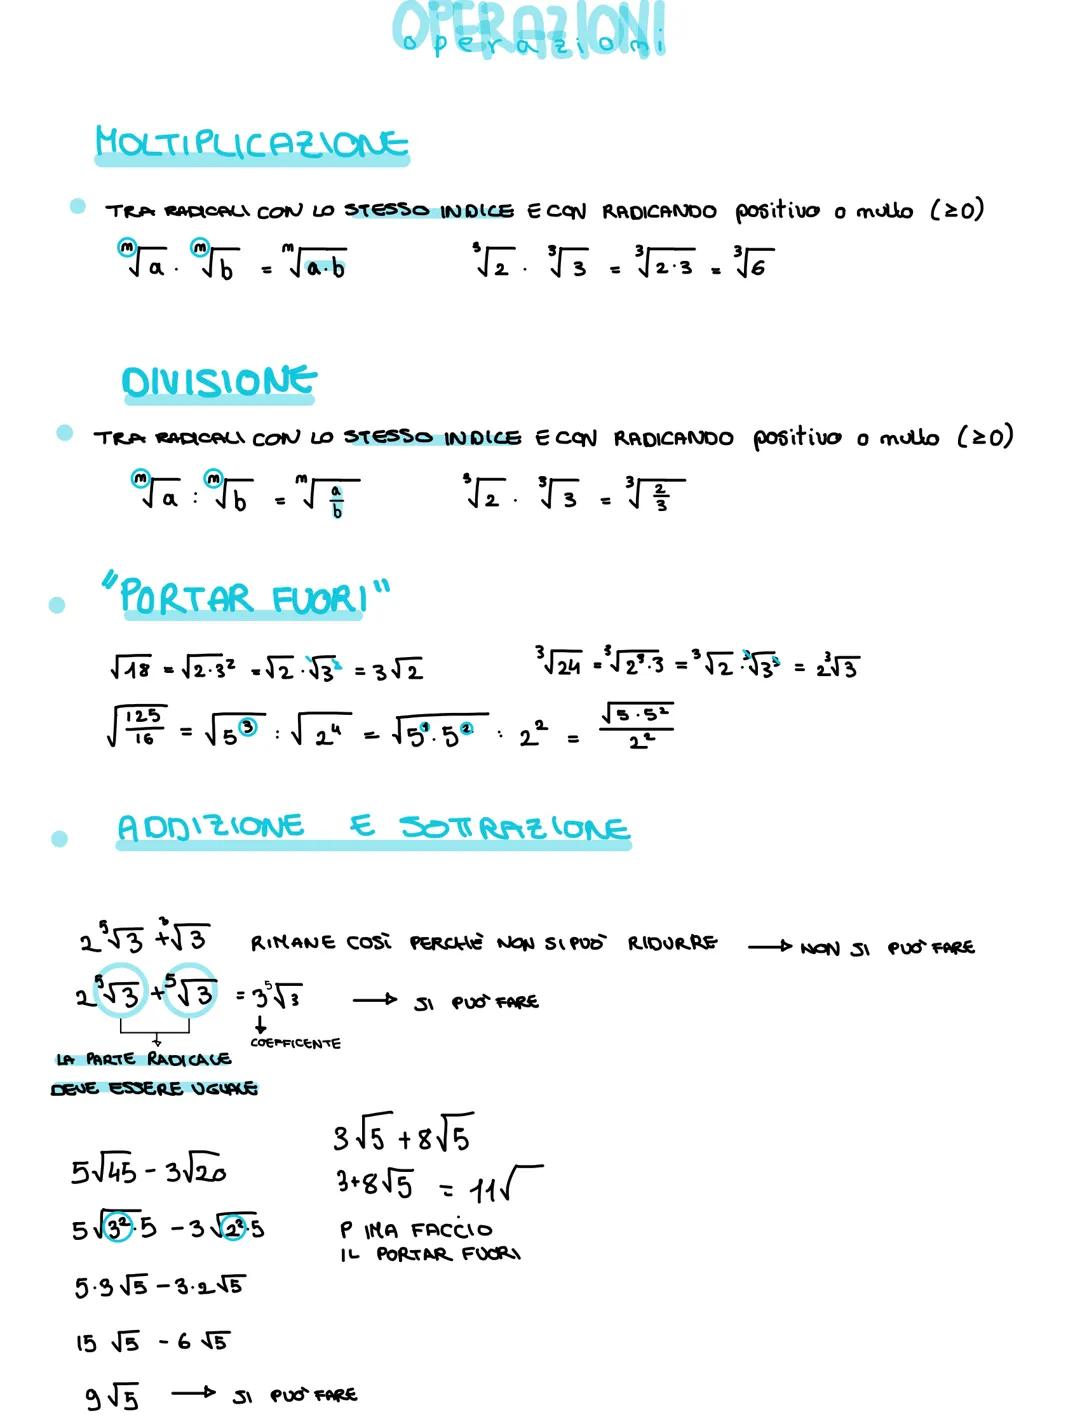 OPERAZIONI
operazioni
MOLTIPLICAZIONE
TRA RADICALI CON LO STESSO INDICE E CON RADICANDO positivo o nullo (≥0)
ᵐ√a · ᵐ√b = ᵐ√a·b ³√2 · ³√3 = ³√2·3 = ³√6
DIVISIONE
TRA RADICALI CON LO STESSO INDICE E CON RADICANDO positivo o nullo (≥0)
ᵐ√a : ᵐ√b = ᵐ√a/b ³√2 · ³√3 = ³√2/3
"PORTAR FUORI"
√18 = √2·3² = √2 · √3² = 3√2 ³√24 = ³√2³·3 = ³√2 · ³√3³ = 2³√3
√125/16 = √5³ : √2⁴ = √5¹·5² : 2² = √5·5²/2²
ADDIZIONE E SOTTRAZIONE
2⁵√3 + ³√3 RIMANE COSÌ PERCHÈ NON SI PUÒ RIDURRE → NON SI PUÒ FARE
2⁵√3 + ⁵√3 = 3⁵√3 → SI PUÒ FARE
COEFFICENTE
LA PARTE RADICALE
DEVE ESSERE UGUALE
3√5 + 8√5
5√45 - 3√20
3+8√5 = 11√
5√3²·5 - 3√2²·5
P IMA FACCIO
IL PORTAR FUORI
5·3√5 - 3·2√5
15√5 - 6√5
9√5 → SI PUÒ FARE